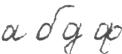 а б д ф